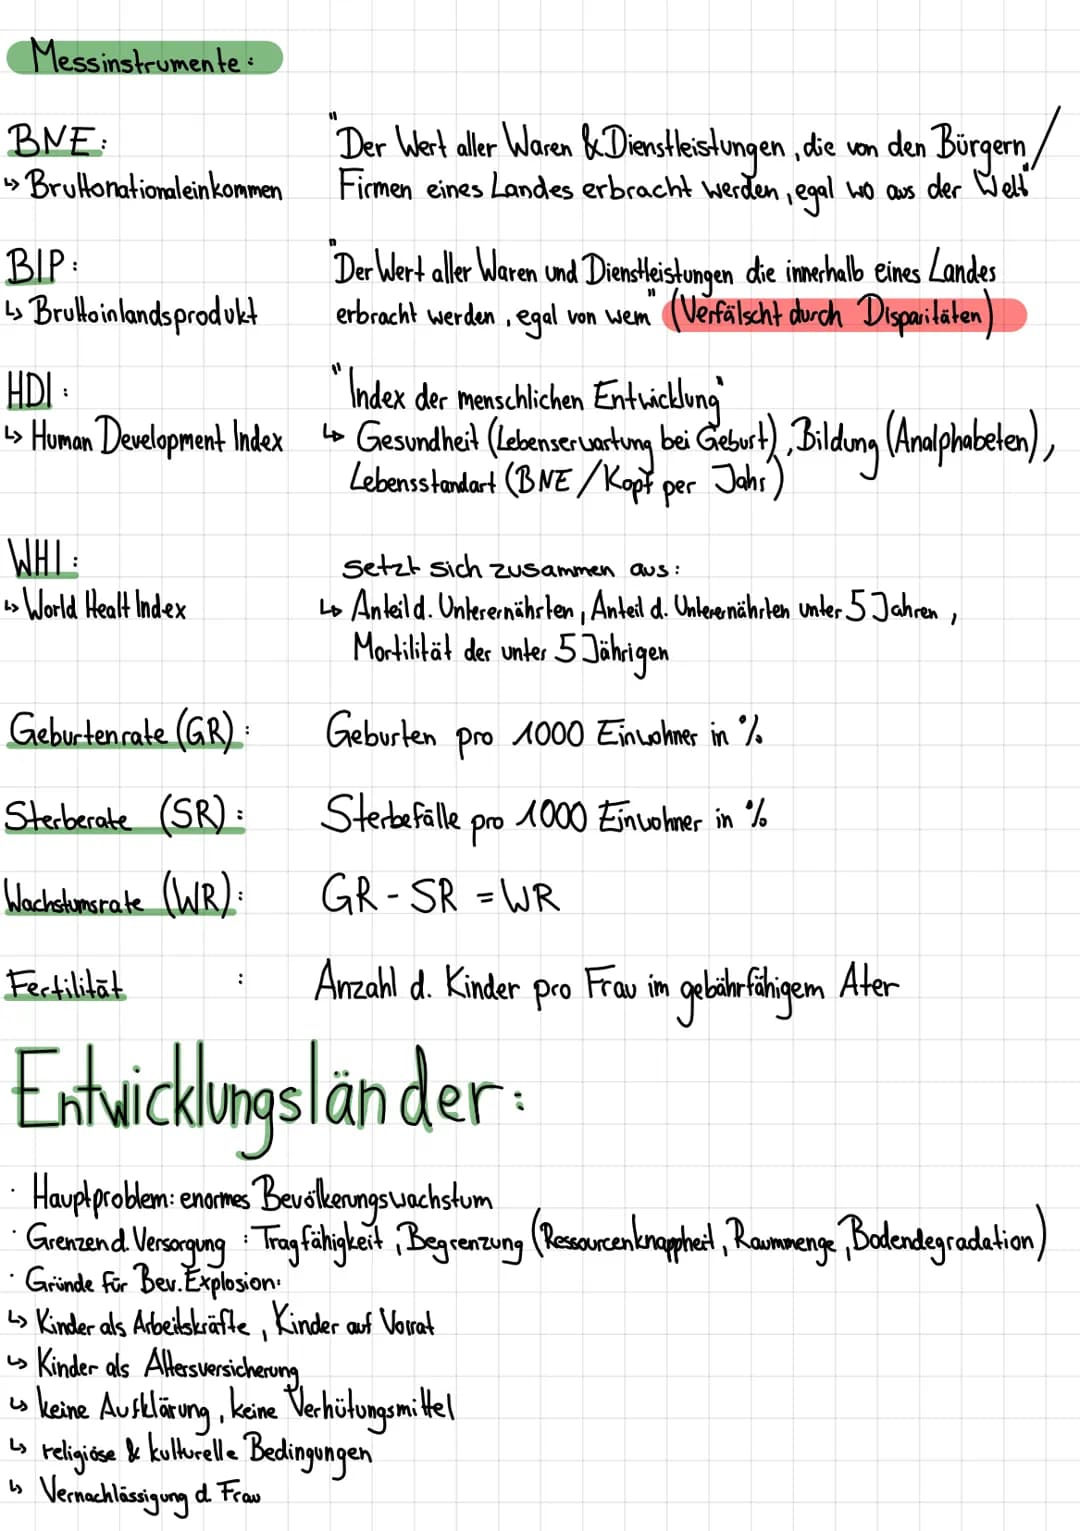 Messinstrumente:
BNE:
↳ Bruttonationaleinkommen
"Der Wert aller Waren & Dienstleistungen, die von den Bürgern/
Firmen eines Landes erbracht werden, egal wo aus der Welt"
BIP:
↳ Bruttoinlandsprodukt
"Der Wert aller Waren und Dienstleistungen die innerhalb eines Landes
erbracht werden, egal von wem" (Verfälscht durch Disparitäten)
HDI:
↳ Human Development Index
"Index der menschlichen Entwicklung"
↳ Gesundheit (Lebenserwartung bei Geburt), Bildung (Analphabeten),
Lebensstandart (BNE/Kopf per Jahr)
WHI:
↳ World Healt Index
setzt sich zusammen aus:
↳ Anteil d. Unterernährten, Anteil d. Unterernährten unter 5 Jahren,
Mortilität der unter 5 Jährigen
Geburtenrate (GR): Geburten pro 1000 Einwohner in %
Sterberate (SR): Sterbefälle pro 1000 Einwohner in %
Wachstumsrate (WR): GR - SR = WR
Fertilität : Anzahl d. Kinder pro Frau im gebährfähigem Ater
Entwicklungsländer:
· Hauptproblem: enormes Bevölkerungswachstum
· Grenzen d. Versorgung : Tragfähigkeit, Begrenzung (Ressourcenknappheit, Raummenge, Bodendegradation)
· Gründe für Bev. Explosion:
↳ Kinder als Arbeitskräfte, Kinder auf Vorrat
↳ Kinder als Altersversicherung
↳ keine Aufklärung, keine Verhütungsmittel
↳ religiöse & kulturelle Bedingungen
↳ Vernachlässigung d. Frau